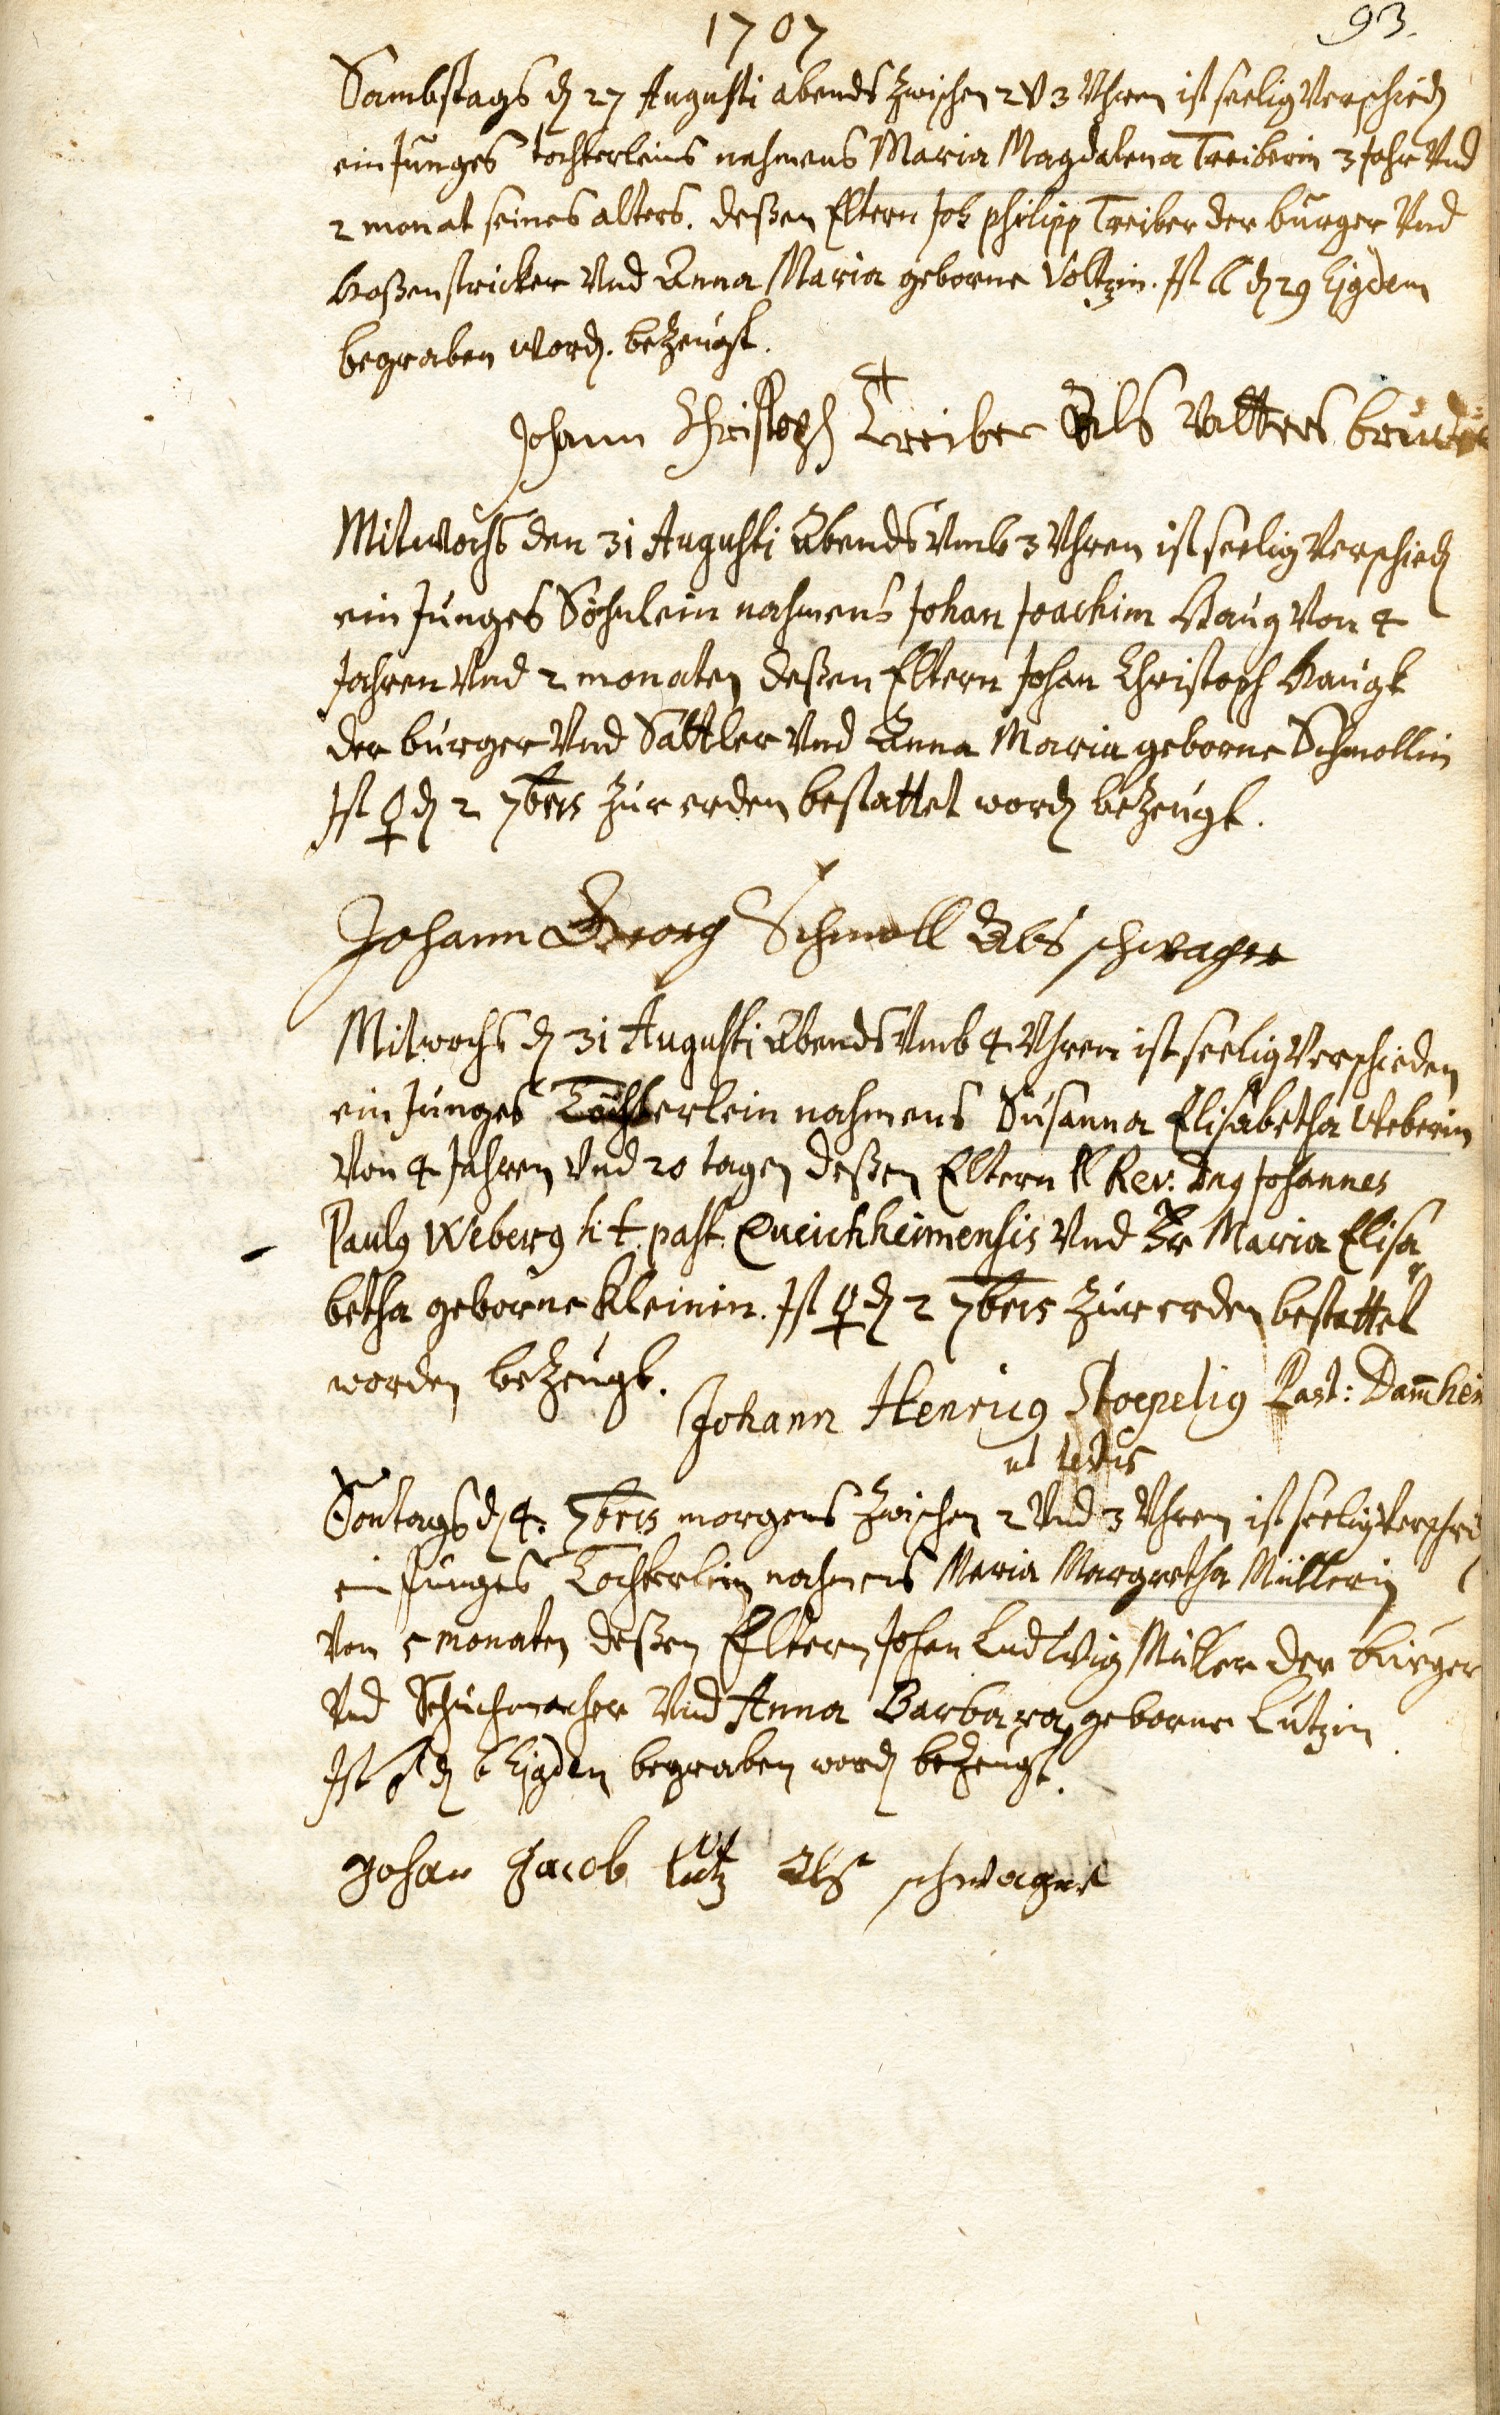 1707
93.
Sambstags d 27 Augusti abends zwischen 2 V 3 Uhren ist seelig verschied
ein Junges töchterleins nahmens Maria Magdalena Treiberin 3 Jahr Vnd
2 monat seines alters. deßen Eltern Joh philipp Treiber der burger Vnd
Hoßenstricker Vnd Anna Maria geborne Voltzin. Ist ☾ d 29 Ejgdem
begraben word. bezeugt.
Johann Christoph Treiber Als Vatters bruder
Mitwochs den 31 Augusti Abends Vmb 3 Uhren ist seelig verschied
ein Junges Söhnlein nahmens Johan Joachim Haug Von 4
Jahren Vnd 2 monaten deßen Eltern Johan Christoph Haugk
der burger Vnd Sattler Vnd Anna Maria geborne Schmollin
Ist ♀ d 2 7bris zur erden bestattet word bezeugt.
Johann Georg Schmoll Als schwager
Mitwochs d 31 Augusti Abends Vmb 4 Uhren ist seelig verschieden
ein Junges Töchterlein nahmens Susanna Elisabetha Weberin
Von 4 Jahren Vnd 20 tagen deßen Eltern Rev: Dng Johannes
Paulg Weberg h. t. past. Queichheimensis Vnd Fr Maria Elisa
betha geborne Kleinin. Ist ♀ d 2 7bris zur erden bestattet
worden bezeugt.
Johann Henricg Stoepelig Past: Dam̄heim
ut testis
Sontags d 4. 7bris morgens zwischen 2 Vnd 3 Uhren ist seelig verschied
ein Junges Töchterlein nahmens Maria Margretha Müllerin
Von 5 monaten deßen Eltern Johan Ludwig Müller der burger
Vnd Schuchmacher Vnd Anna Barbara geborne Lutzin
Ist ♂ d 6 Ejgden begraben word bezeugt.
Johan Jacob lutz Als schwager